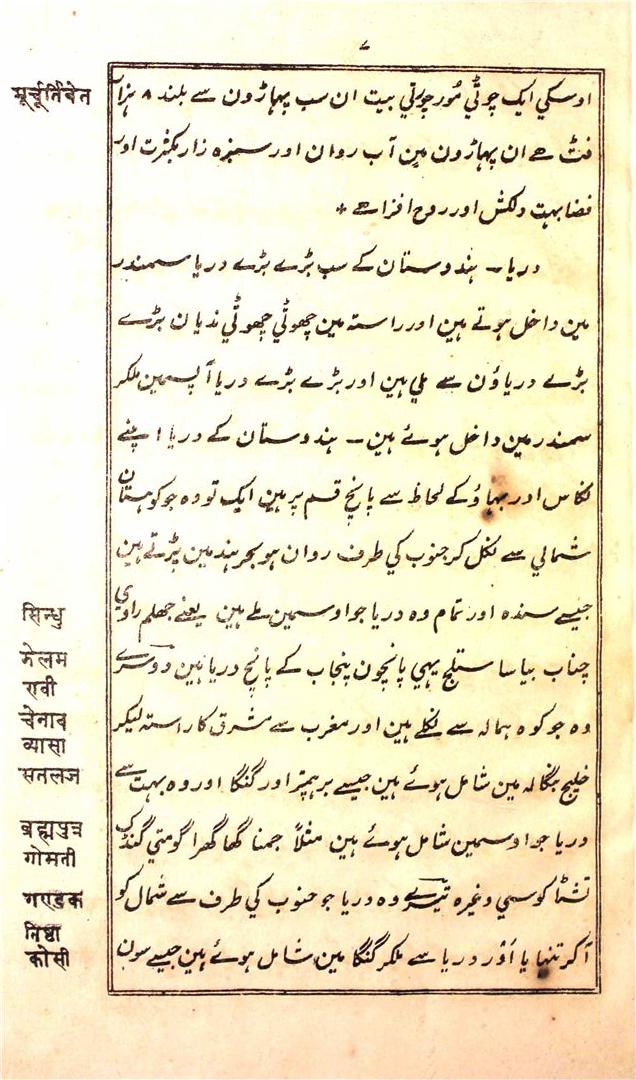 ۷
اوسکی ایک چوٹی مورچورتی بیت ان سب پہاڑون سے بلند ۸ ہزار
فٹ ہے ان پہاڑون مین آب روان اور سبزہ زار بکثرت اور
فضا بہت دلکش اور روح افزا ہے *
دریا۔ ہندوستان کے سب بڑے بڑے دریا سمندر
مین داخل ہوتے ہین اور راستہ مین چھوٹی چھوٹی ندیان بڑے
بڑے دریاؤن سے ملی ہین اور بڑے بڑے دریا آپسمین ملکر
سمندر مین داخل ہوئے ہین۔ ہندوستان کے دریا اپنے
نکاس اور بہاؤ کے لحاظ سے پانچ قسم پر ہین ایک تو وہ جو کوہستان
شمالی سے نکل کر جنوب کی طرف روان ہو بحر ہند مین پڑتے ہین
جیسے سندہ اور تمام وہ دریا جو اوسمین ملے ہین یعنے جھلم راوی
چناب بیاسا ستلج یہی پانچون پنجاب کے پانچ دریا ہین دوسرے
وہ جو کوہ ہمالہ سے نکلے ہین اور مغرب سے مشرق کا راستہ لیکر
خلیج بنگالہ مین شامل ہوئے ہین جیسے برہمپتر اور گنگا اور وہ بہت سے
دریا جو اوسمین شامل ہوئے ہین مثلاً جمنا گھاگھرا گومتی گنڈک
تشٹا کوسی وغیرہ تیسرے وہ دریا جو جنوب کی طرف سے شمال کو
آکر تنہا یا اؤر دریا سے ملکر گنگا مین شامل ہوئے ہین جیسے سون
मूर्चूर्तिबेत
सिन्धु
झेलम
रावी
चेनाब
व्यासा
सतलज
ब्रह्मपुत्र
गोमती
गण्डक
तिष्ठा
कोसी